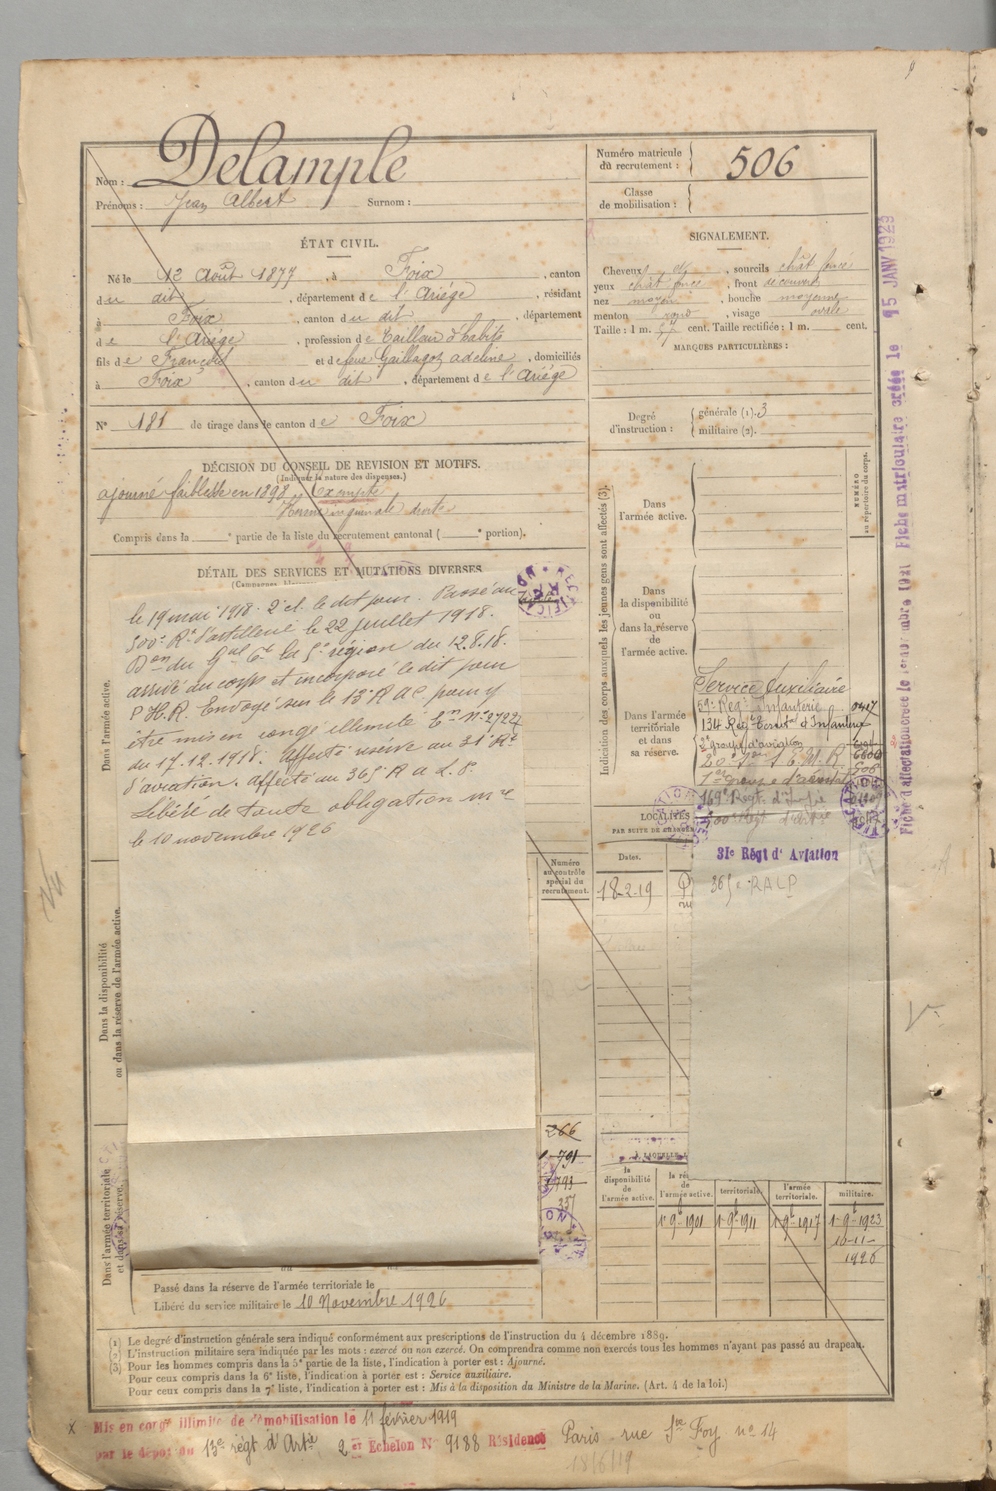 Nom : Delample
Prénoms : Jean Albert Surnom :
Numéro matricule du recrutement : 506
Classe de mobilisation :
ÉTAT CIVIL.
Né le 12 Août 1877, à Foix, canton
du dit, département de l'Ariège, résidant
à Foix, canton du dit, département
de l'Ariège, profession de Tailleur d'habits
fils de François et de feue Gaillagoz adeline, domiciliés
à Foix, canton du dit, département de l'Ariège
N° 181 de tirage dans le canton de Foix
SIGNALEMENT.
Cheveux et, sourcils chât foncé
yeux chât foncé, front découvert
nez moyen, bouche moyenne
menton rond, visage ovale
Taille : 1 m. 57 cent. Taille rectifiée : 1 m. cent.
MARQUES PARTICULIÈRES :
Degré d'instruction : générale (1). 3
militaire (2).
DÉCISION DU CONSEIL DE REVISION ET MOTIFS.
(Indiquer la nature des dispenses.)
ajourné faiblesse en 1898, Exempté
Hernie inguinale droite
Compris dans la e partie de la liste du recrutement cantonal ( e portion).
DÉTAIL DES SERVICES ET MUTATIONS DIVERSES
le 19 mai 1918. 2e cl. le dit jour. Passé au
500e Rt d'artillerie le 22 juillet 1918.
Don du Gal Ct la 5e région du 12.8.18.
arrivé du corps et incorporé le dit jour
P.H.R. Envoyé sur le 13e R A C pour y
être mis en congé illimité Cn No 2722
du 17.12.1918. Affecté réserve au 31e Rt
d'aviation. Affecté au 365e R a L. P.
Libéré de toute obligation mre
le 10 novembre 1926
Dans l'armée active.
Dans la disponibilité ou dans la réserve de l'armée active.
Dans l'armée territoriale et dans sa réserve.
Indication des corps auxquels les jeunes gens sont affectés (3).
NUMÉRO au répertoire du corps.
Dans l'armée active.
Dans la disponibilité ou dans la réserve de l'armée active.
Dans l'armée territoriale et dans sa réserve.
Service Auxiliaire
59e Regt Infanterie
134 Régt Territal d'Infanterie
2e groupe d'aviation
1er Groupe d'aviation
169e Régt d'Infie
500e Régt d'Artie
LOCALITÉS
31e Régt d'Aviation
365e RALP
Numéro au contrôle spécial du recrutement.
Dates.
18-2-19
266
791
793
357
la disponibilité de l'armée active.
l'armée active.
territoriale.
l'armée territoriale.
militaire.
1-9-1901 1-9-1911 1-9-1917 1-9-1923
10-11-1926
Passé dans la réserve de l'armée territoriale le
Libéré du service militaire le 10 Novembre 1926
(1) Le degré d'instruction générale sera indiqué conformément aux prescriptions de l'instruction du 4 décembre 1889.
(2) L'instruction militaire sera indiquée par les mots : exercé ou non exercé. On comprendra comme non exercés tous les hommes n'ayant pas passé au drapeau.
(3) Pour les hommes compris dans la 5e partie de la liste, l'indication à porter est : Ajourné.
Pour ceux compris dans la 6e liste, l'indication à porter est : Service auxiliaire.
Pour ceux compris dans la 7e liste, l'indication à porter est : Mis à la disposition du Ministre de la Marine. (Art. 4 de la loi.)
Mis en congé illimité de démobilisation le 11 février 1919
par le dépôt du 13e régt d'Artie 2 er Echelon N° 9188 Résidence Paris rue Ste Foy no 14
18/6/19
Fiche matriculaire créée le 15 JANV 1923